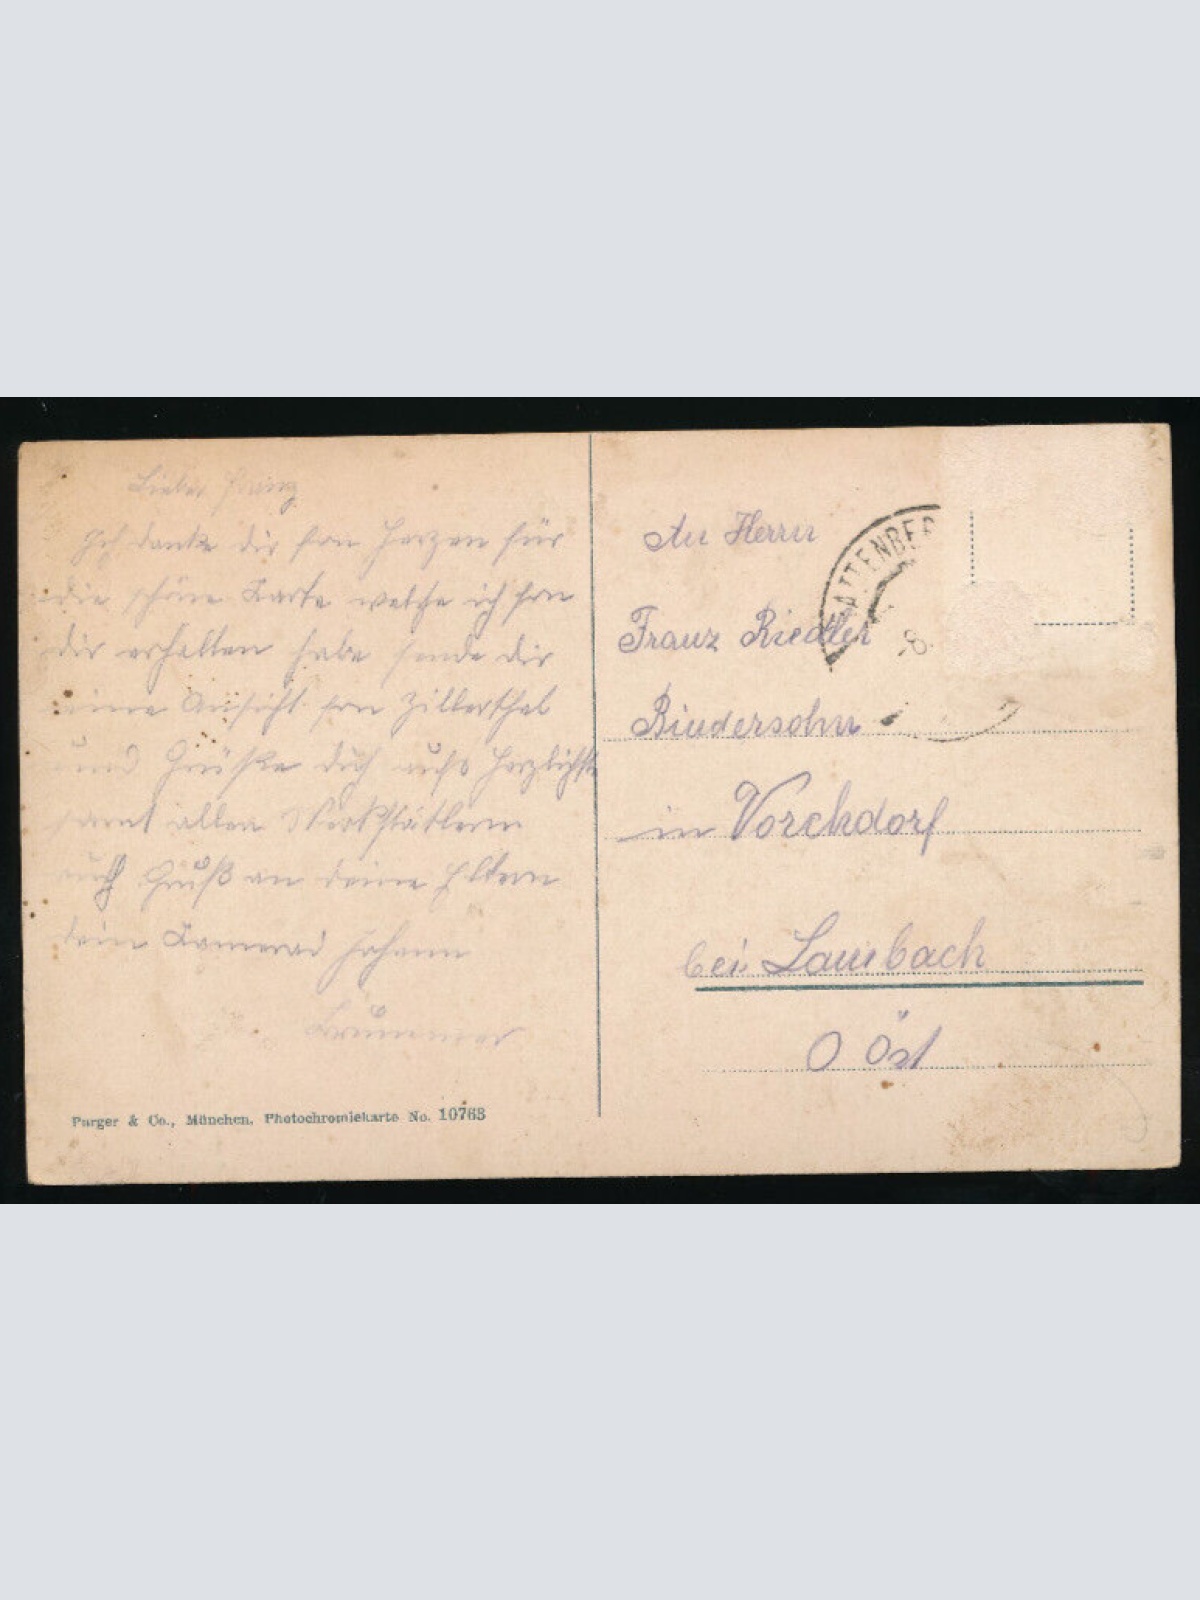 Lieber Franz
Ich danke dir fon Herzen für
die schöne Karte welche ich fon
dir erhalten habe sende dir
eine Ansicht fon Zillerthal
und Grüße dich aufs Herzlichste
samt allen
auch Gruß an deine Eltern
dein Kamerad Johann
Brummer
Purger & Co., München. Photochromiekarte No. 10763
An Herrn
Franz Riedler
Bindersohn
in Vorchdorf
bei Lambach
O Öst
RATTENBER
-8.